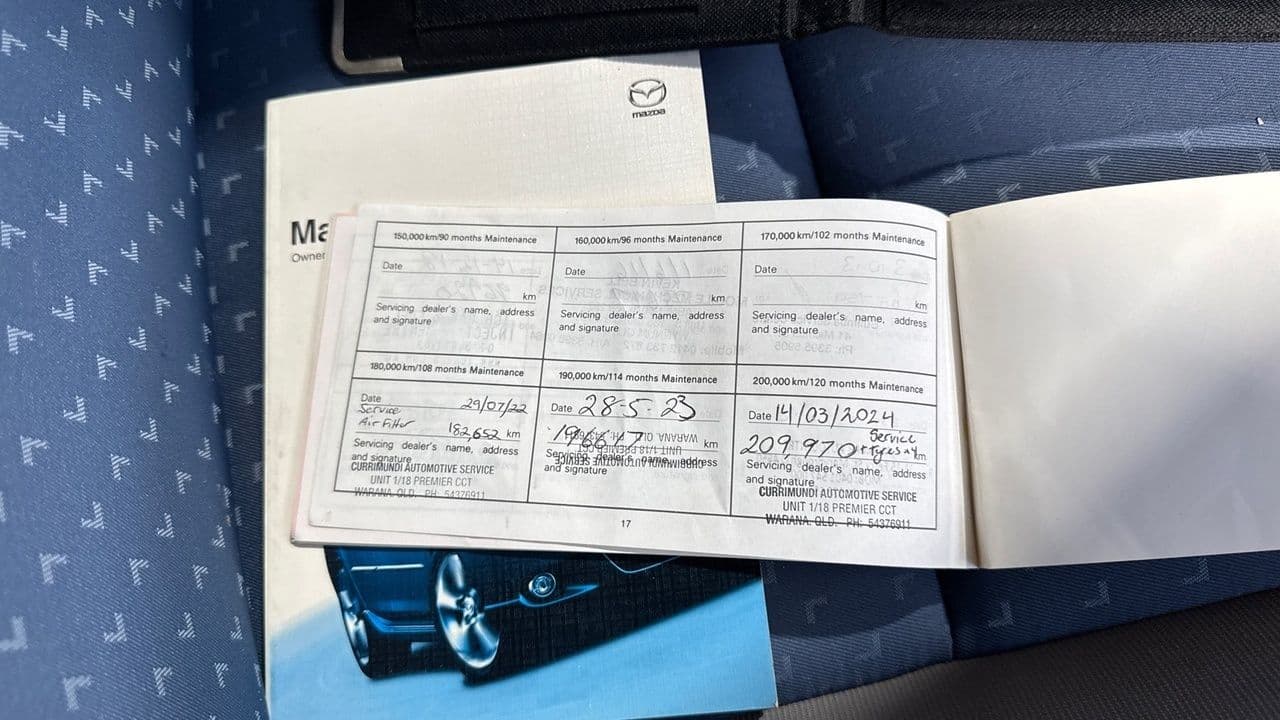 mazda
Ma
Owner
150,000 km/90 months Maintenance
Date
km
Servicing dealer's name, address
and signature
160,000 km/96 months Maintenance
Date
km
Servicing dealer's name, address
and signature
170,000 km/102 months Maintenance
Date
km
Servicing dealer's name, address
and signature
180,000 km/108 months Maintenance
Date 29/07/22
Service
Air Filter 182,652 km
Servicing dealer's name, address
and signature
CURRIMUNDI AUTOMOTIVE SERVICE
UNIT 1/18 PREMIER CCT
WARANA. QLD. PH: 54376911
190,000 km/114 months Maintenance
Date 28-5-23
km
Servicing dealer's name, address
and signature
CURRIMUNDI AUTOMOTIVE SERVICE
UNIT 1/18 PREMIER CCT
WARANA. QLD. PH:
200,000 km/120 months Maintenance
Date 14/03/2024
Service
209,970 + Tyres x4 km
Servicing dealer's name, address
and signature
CURRIMUNDI AUTOMOTIVE SERVICE
UNIT 1/18 PREMIER CCT
WARANA. QLD. PH: 54376911
17